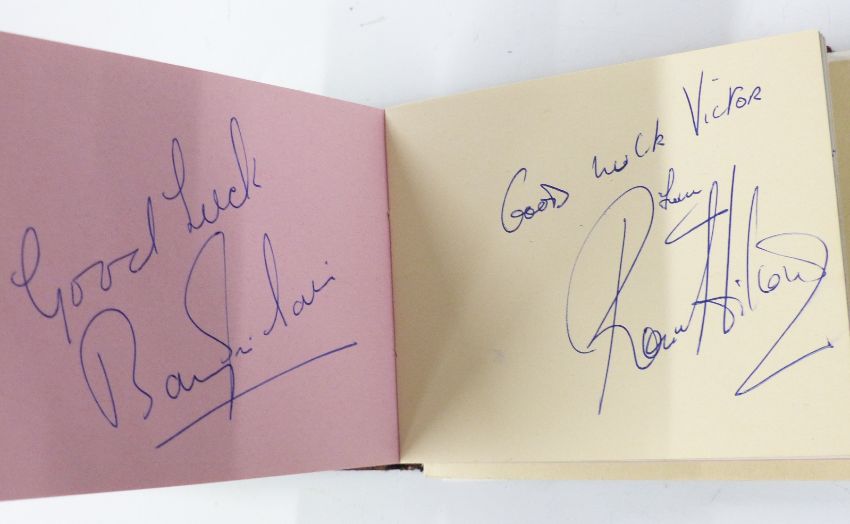 Good Luck
Barry Sinclair
Good Luck Victor
from
Ronnie Hilton